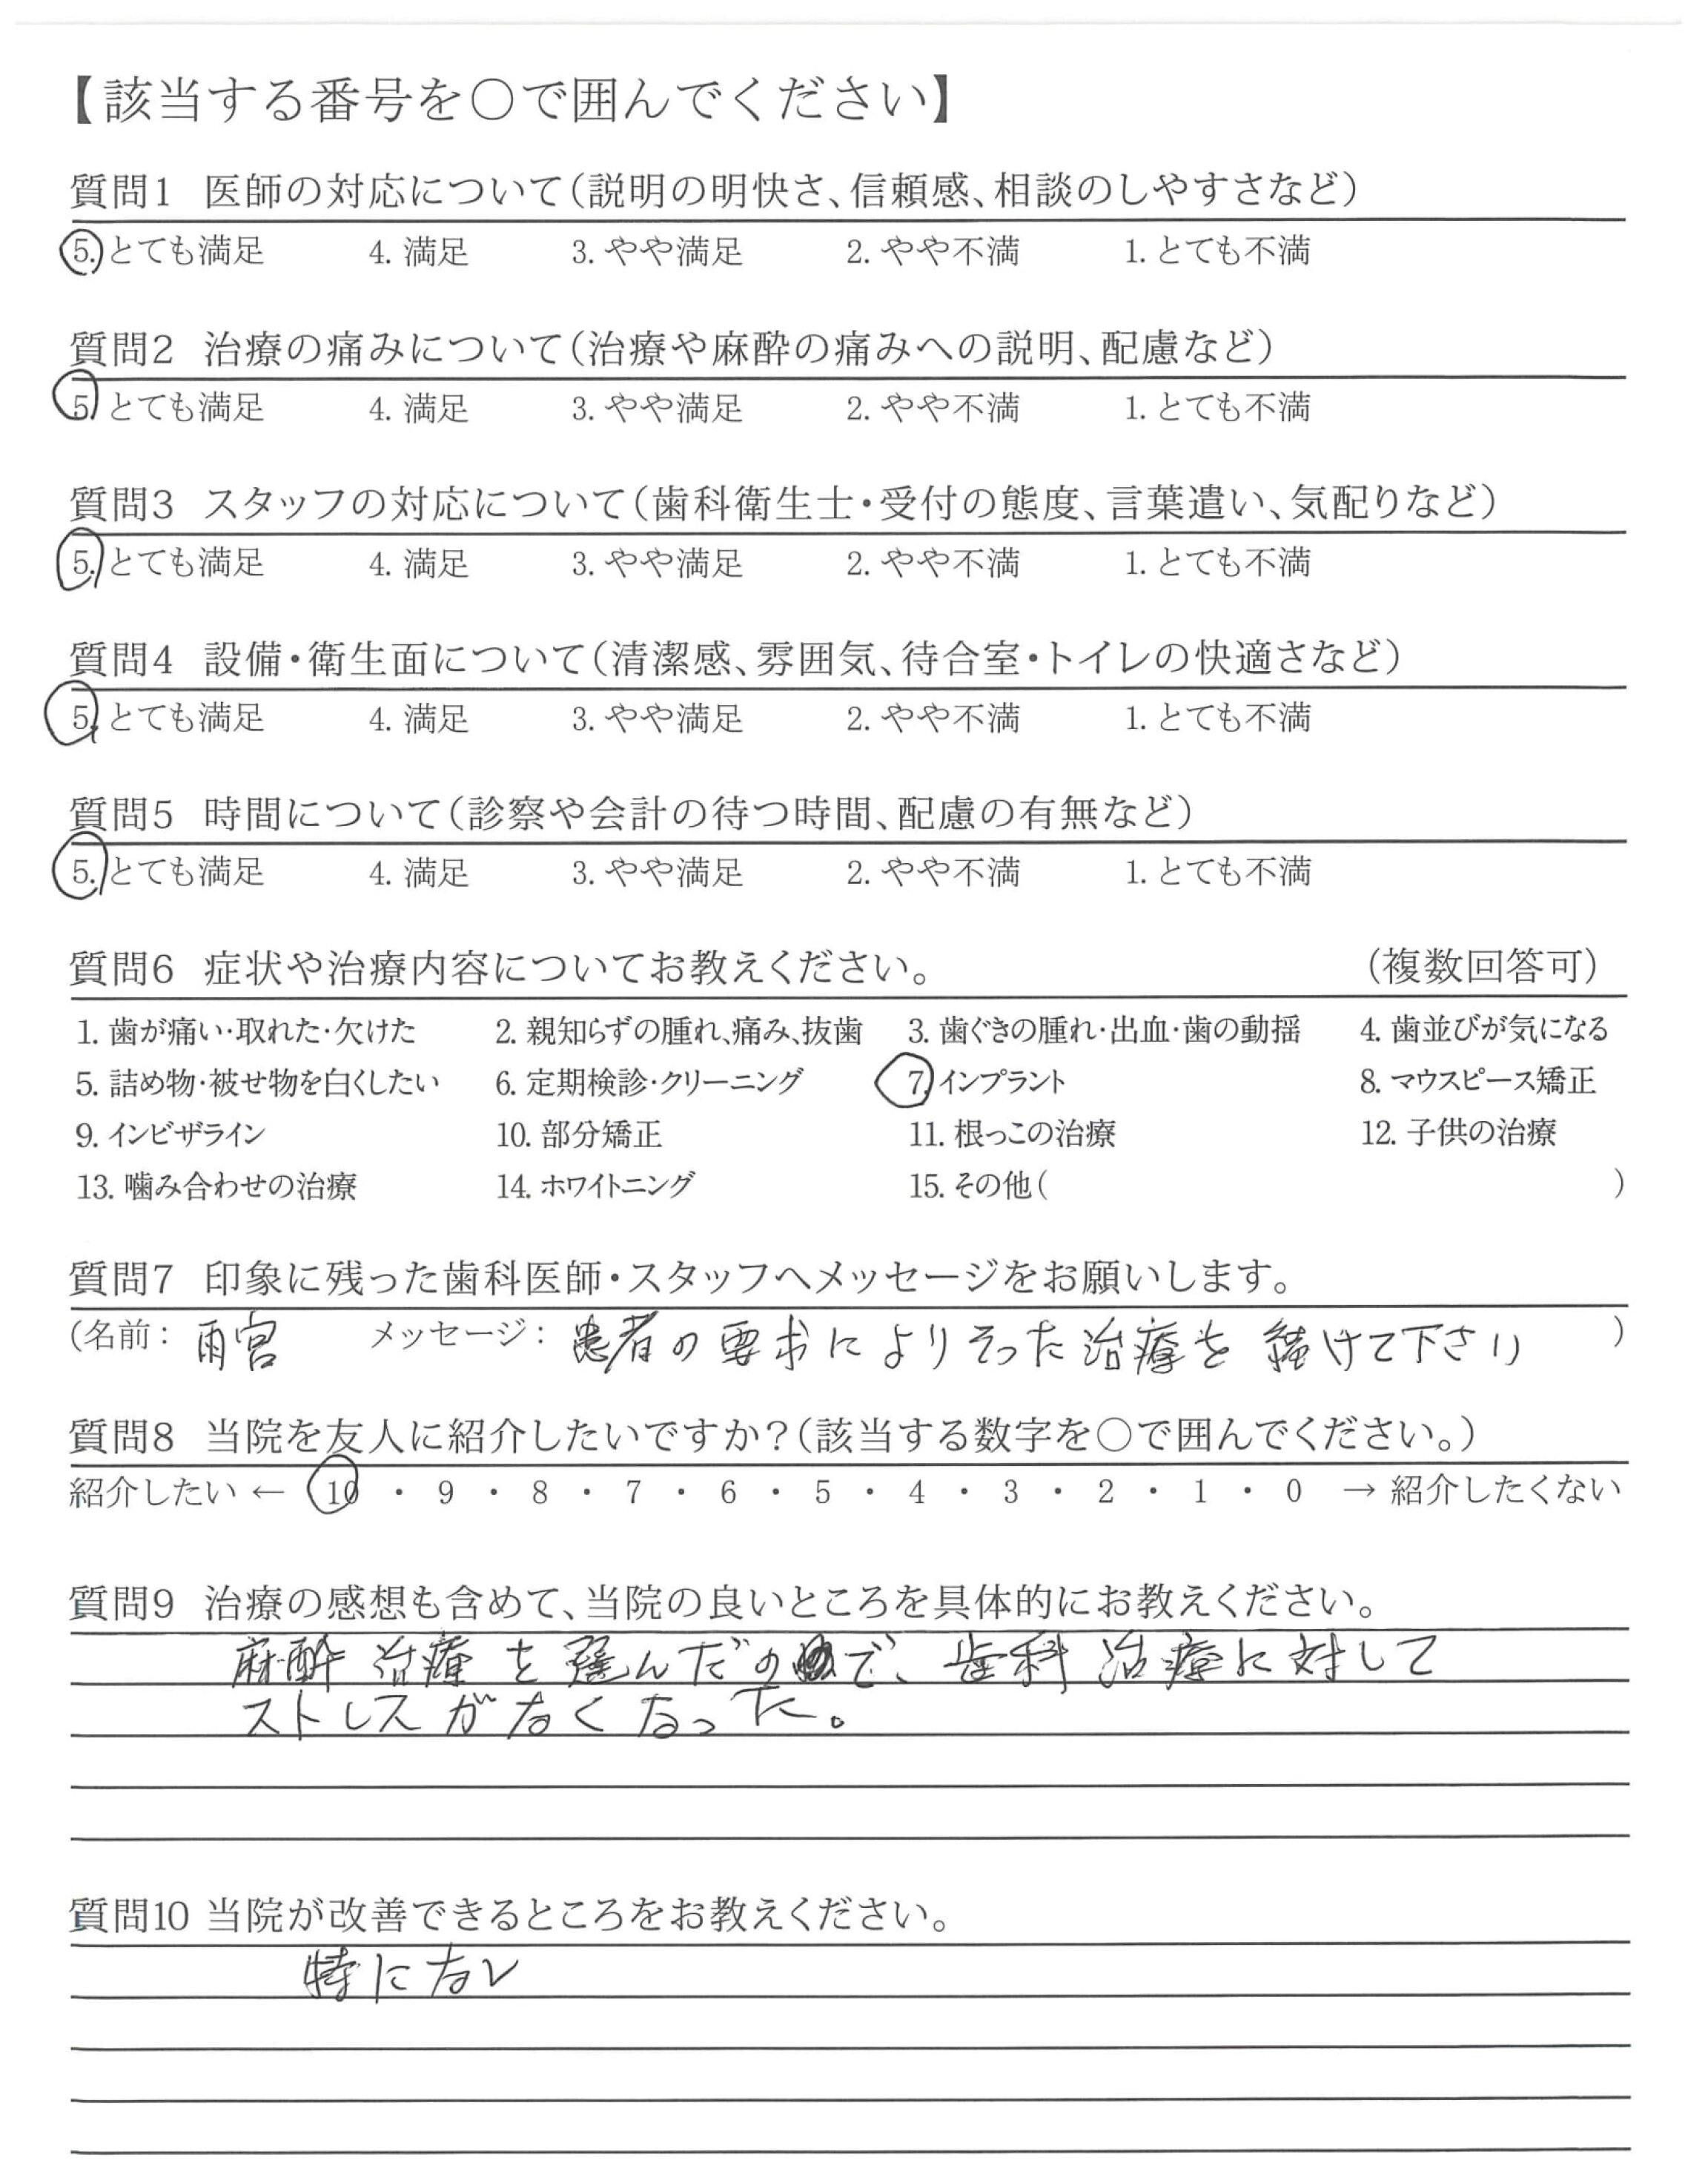 【該当する番号を〇で囲んでください】
質問1 医師の対応について(説明の明快さ、信頼感、相談のしやすさなど)
5. とても満足 4. 満足 3. やや満足 2. やや不満 1. とても不満
質問2 治療の痛みについて(治療や麻酔の痛みへの説明、配慮など)
5. とても満足 4. 満足 3. やや満足 2. やや不満 1. とても不満
質問3 スタッフの対応について(歯科衛生士・受付の態度、言葉遣い、気配りなど)
5. とても満足 4. 満足 3. やや満足 2. やや不満 1. とても不満
質問4 設備・衛生面について(清潔感、雰囲気、待合室・トイレの快適さなど)
5. とても満足 4. 満足 3. やや満足 2. やや不満 1. とても不満
質問5 時間について(診察や会計の待つ時間、配慮の有無など)
5. とても満足 4. 満足 3. やや満足 2. やや不満 1. とても不満
質問6 症状や治療内容についてお教えください。 (複数回答可)
1. 歯が痛い・取れた・欠けた 2. 親知らずの腫れ、痛み、抜歯 3. 歯ぐきの腫れ・出血・歯の動揺 4. 歯並びが気になる
5. 詰め物・被せ物を白くしたい 6. 定期検診・クリーニング 7. インプラント 8. マウスピース矯正
9. インビザライン 10. 部分矯正 11. 根っこの治療 12. 子供の治療
13. 噛み合わせの治療 14. ホワイトニング 15. その他( )
質問7 印象に残った歯科医師・スタッフへメッセージをお願いします。
(名前: 雨宮 メッセージ: 患者の要求によりそった治療を続けて下さい )
質問8 当院を友人に紹介したいですか?(該当する数字を〇で囲んでください。)
紹介したい ← 10 ・ 9 ・ 8 ・ 7 ・ 6 ・ 5 ・ 4 ・ 3 ・ 2 ・ 1 ・ 0 → 紹介したくない
質問9 治療の感想も含めて、当院の良いところを具体的にお教えください。
麻酔治療を選んだので、歯科治療に対して
ストレスがなくなった。
質問10 当院が改善できるところをお教えください。
特になし